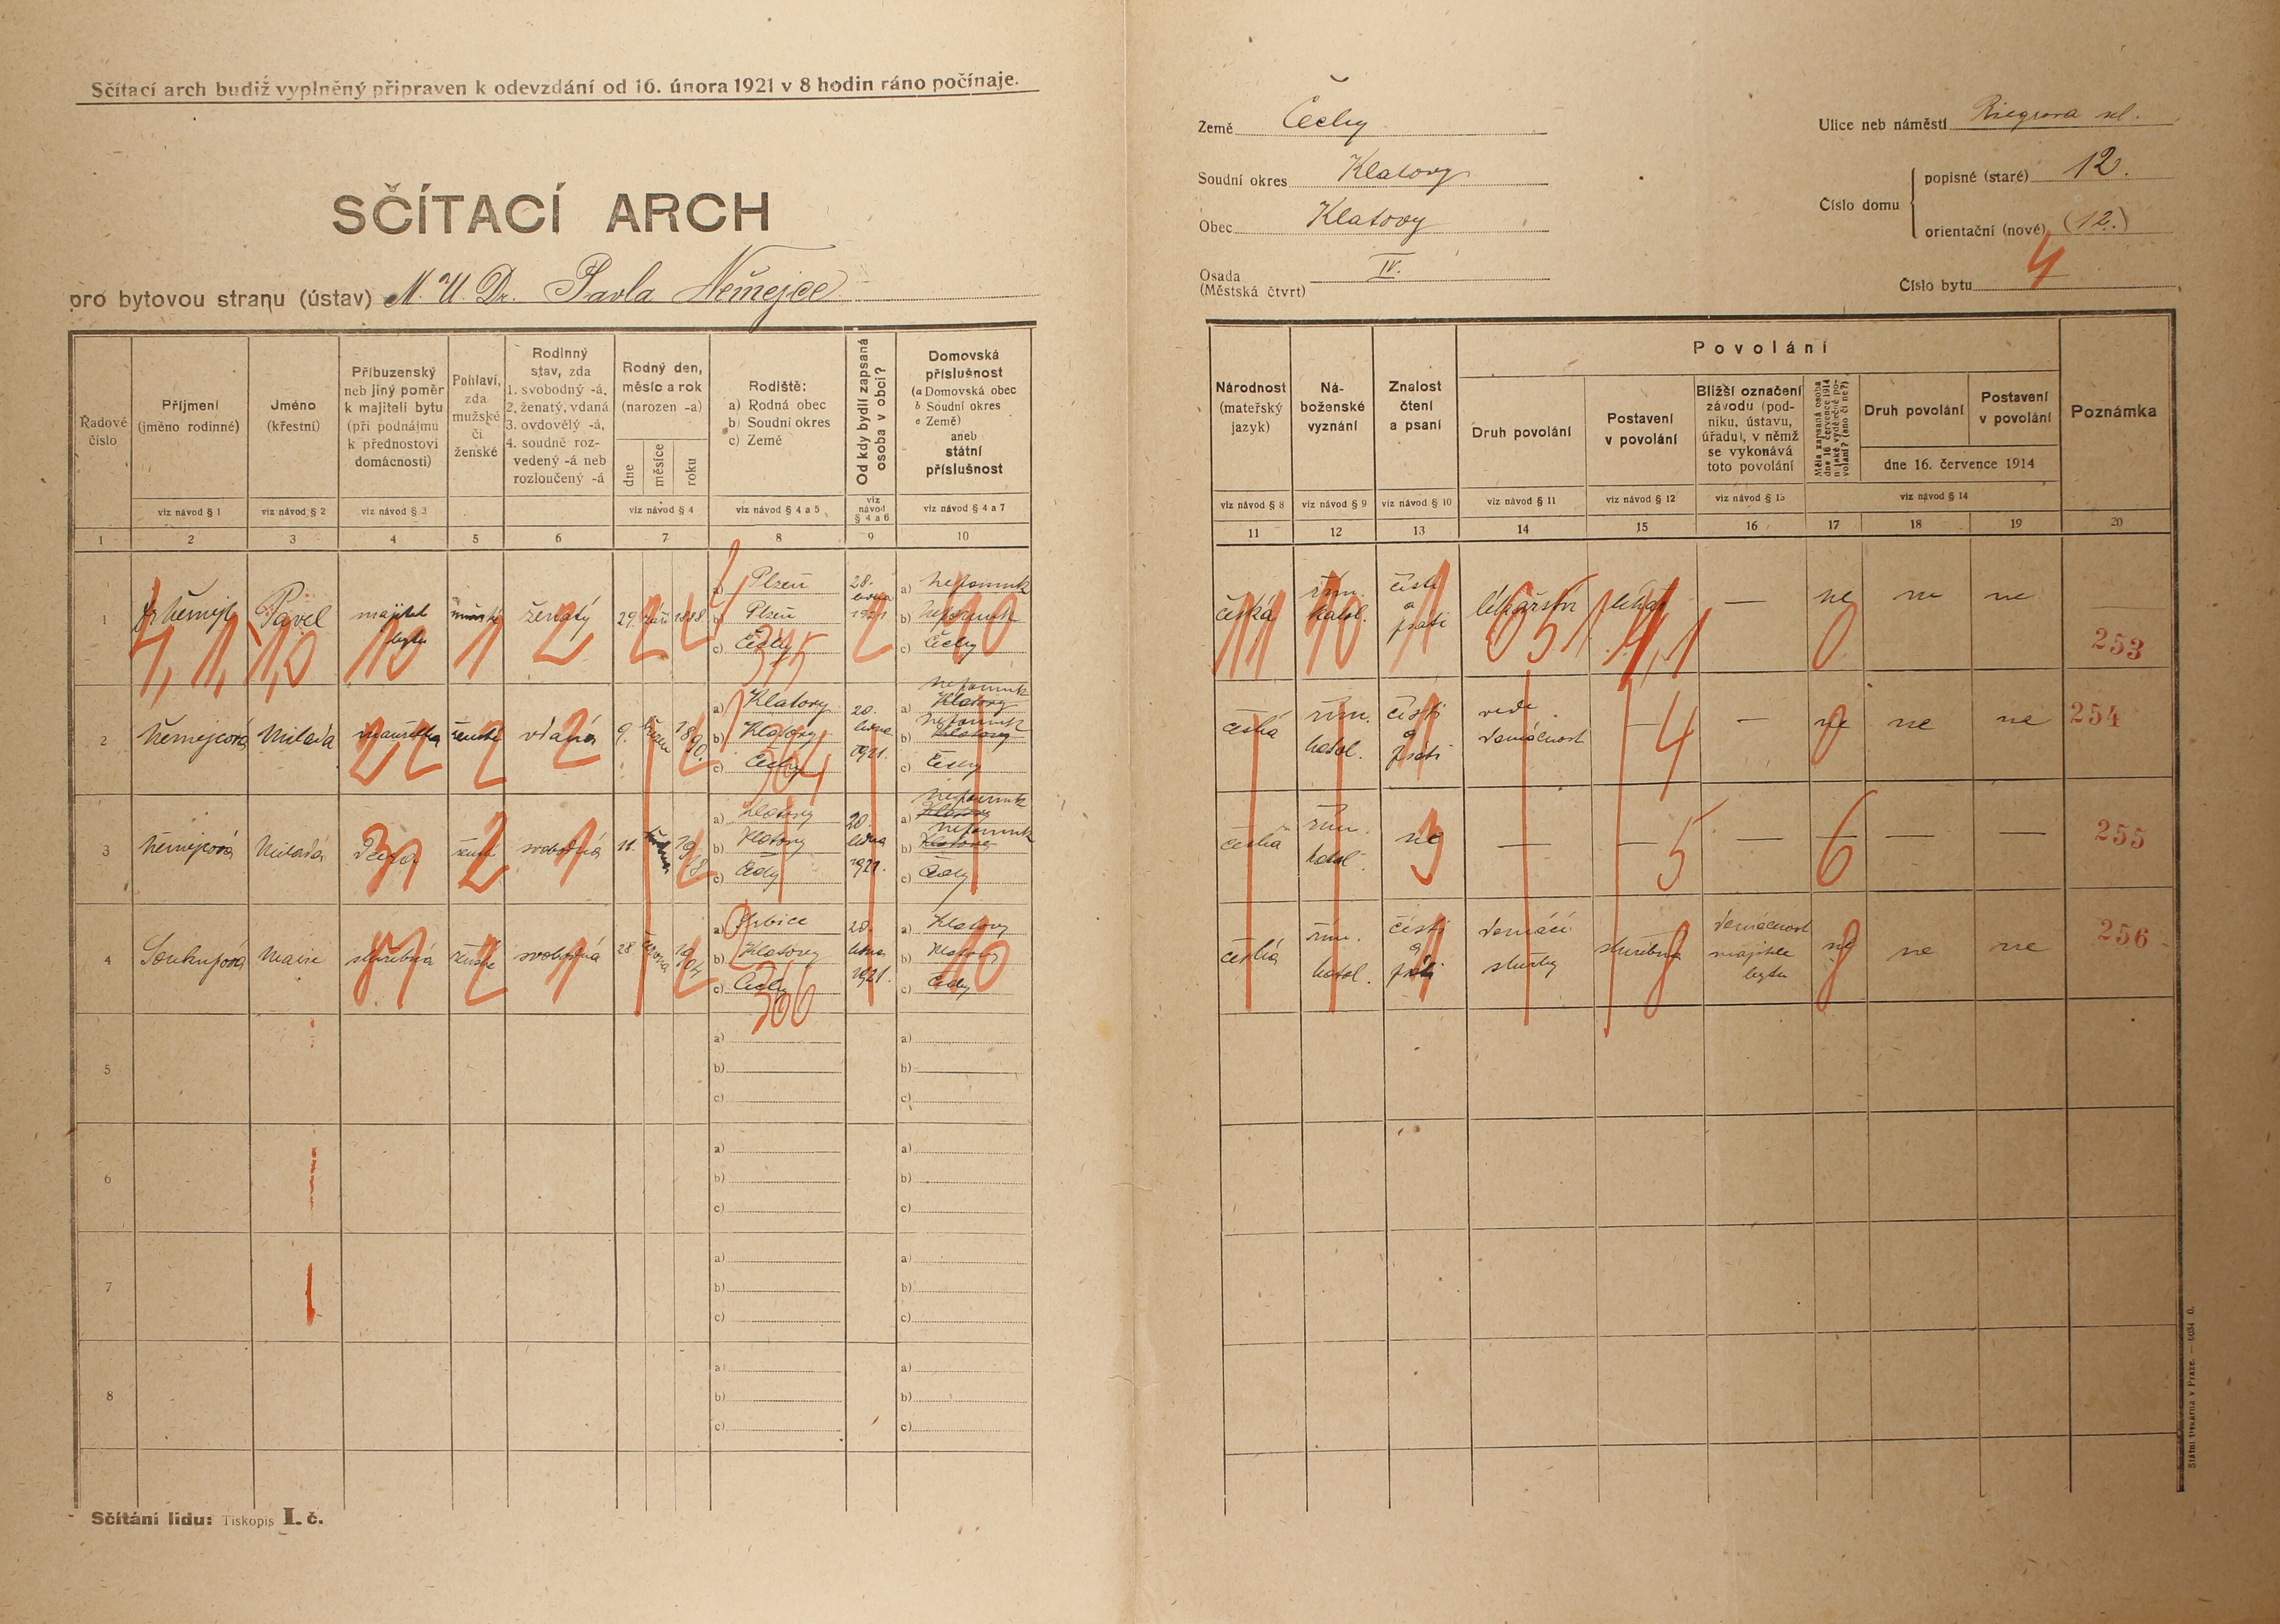 Sčítací arch budiž vyplněný připraven k odevzdání od 16. února 1921 v 8 hodin ráno počínaje.
SČÍTACÍ ARCH
pro bytovou stranu (ústav) M. U. Dr. Pavla Němejce
Země Čechy
Soudní okres Klatovy
Obec Klatovy
Osada
(Městská čtvrt) IV.
Ulice neb náměstí Riegrova
Číslo domu
popisné (staré) 12.
orientační (nové) (12.)
Číslo bytu 4
Řadové
číslo
Příjmení
(jméno rodinné)
Jméno
(křestní)
Příbuzenský
neb jiný poměr
k majiteli bytu
(při podnájmu
k přednostovi
domácnosti)
Pohlaví,
zda
mužské
či
ženské
Rodinný
stav, zda
1. svobodný -á,
2. ženatý, vdaná
3. ovdovělý -á,
4. soudně roz-
vedený -á neb
rozloučený -á
Rodný den,
měsíc a rok
(narozen -a)
dne
měsíce
roku
Rodiště:
a) Rodná obec
b) Soudní okres
c) Země
Od kdy bydlí zapsaná
osoba v obci?
Domovská
příslušnost
(a Domovská obec
b Soudní okres
c Země)
aneb
státní
příslušnost
viz návod § 1
viz návod § 2
viz návod § 3
viz návod § 4
viz návod § 4 a 5
viz
návod
§ 4 a 6
viz návod § 4 a 7
1 2 3 4 5 6 7 8 9 10
Národnost
(mateřský
jazyk)
Ná-
boženské
vyznání
Znalost
čtení
a psaní
Povolání
Druh povolání
Postavení
v povolání
Bližší označení
závodu (pod-
niku, ústavu,
úřadu), v němž
se vykonává
toto povolání
Měla zapsaná osoba
dne 16. července 1914
nějaké výdělečné po-
volání? (ano či ne?)
Druh povolání
Postavení
v povolání
dne 16. července 1914
Poznámka
viz návod § 8
viz návod § 9
viz návod § 10
viz návod § 11
viz návod § 12
viz návod § 13
viz návod § 14
11 12 13 14 15 16 17 18 19 20
1 Dr Němejc Pavel majitel bytu mužské ženatý 29. září 1888
a) Plzeň
b) Plzeň
c) Čechy
28. ledna 1921
a) Nepomuk
b) Nepomuk
c) Čechy
česká řím. katol. čísti a psáti lékařství lékař — ne ne ne
253
2 Němejcová Milada manželka ženské vdaná 9. 1890.
a) Klatovy
b) Klatovy
c) Čechy
20. ledna 1921.
a) Nepomuk Klatovy
b) Nepomuk Klatovy
c) Čechy
česká řím. katol. čísti a psáti vede domácnost — — ne ne ne
254
3 Němejcová Milada dcera ženské svobodná 11. 1918
a) Klatovy
b) Klatovy
c) Čechy
20. ledna 1921.
a) Nepomuk Klatovy
b) Nepomuk Klatovy
c) Čechy
česká řím. katol. ne — — — — — —
255
4 Soukupová Marie služebná ženské svobodná 28. června 1904
b) Klatovy
c) Čechy
20. ledna 1921.
a) Klatovy
b) Klatovy
c) Čechy
česká řím. katol. čísti a psáti domácí služby služebná domácnost majitele bytu ne ne ne
256
5 a) b) c) a) b) c)
6 a) b) c) a) b) c)
7 a) b) c) a) b) c)
8 a) b) c) a) b) c)
Sčítání lidu: Tiskopis I. č.
Státní tiskárna v Praze. — 6034 0.